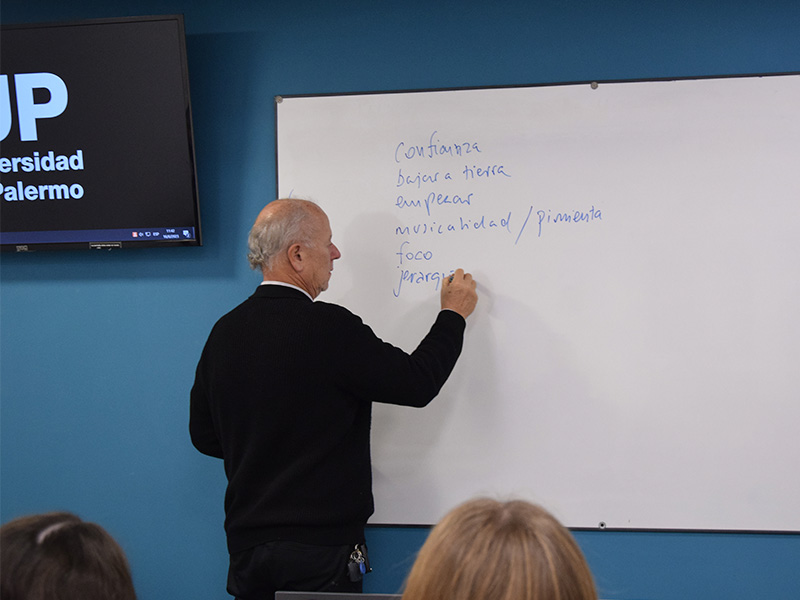 UP
ersidad
Palermo
ESP
confianza
bajar a tierra
empezar
musicalidad / pimenta
foco
jerarqu